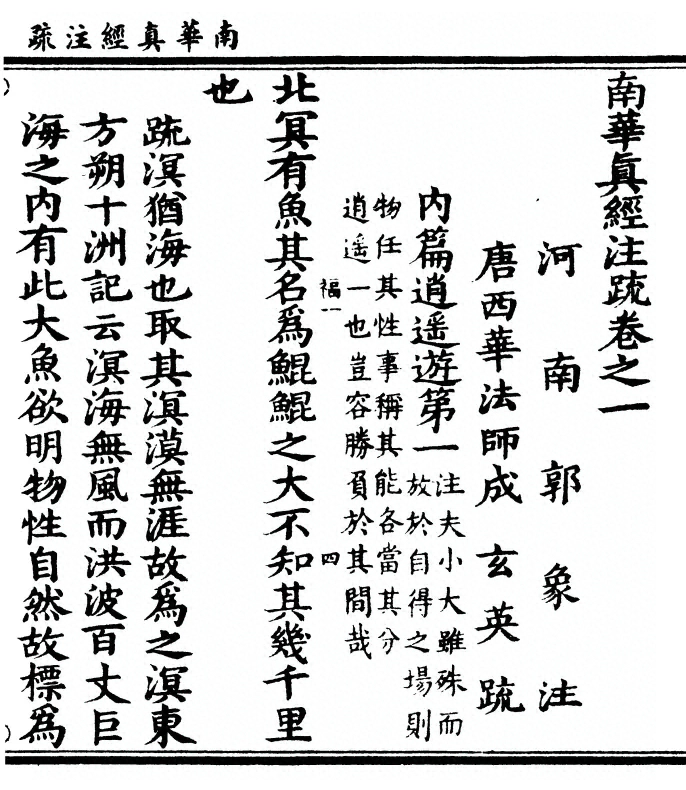 南華真經注疏
南華眞經注䟽卷之一
河南郭象注
唐西華法師成玄英䟽
内篇逍遥遊第一
注夫小大雖殊而
放於自得之場則
物任其性事稱其能各當其分
逍遥一也豈容勝負於其間哉
福一
四
北冥有魚其名爲鯤鯤之大不知其幾千里
也
䟽溟猶海也取其溟漠無涯故爲之溟東
方朔十洲記云溟海無風而洪波百丈巨
海之内有此大魚欲明物性自然故標爲